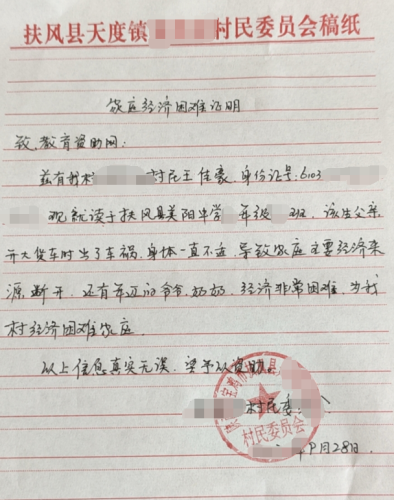 扶风县天度镇 村民委员会稿纸
家庭经济困难证明
致:教育资助网:
兹有我村 村民王佳豪,身份证号:6103
现就读于扶风县美阳中学 年级 班,该生父亲
开大货车时出了车祸,身体一直不适,导致家庭主要经济来
源断开,还有年迈的爷爷,奶奶,经济非常困难,为我
村经济困难家庭.
以上信息真实无误,望予以资助.
村民委
村民委员会
9月28日